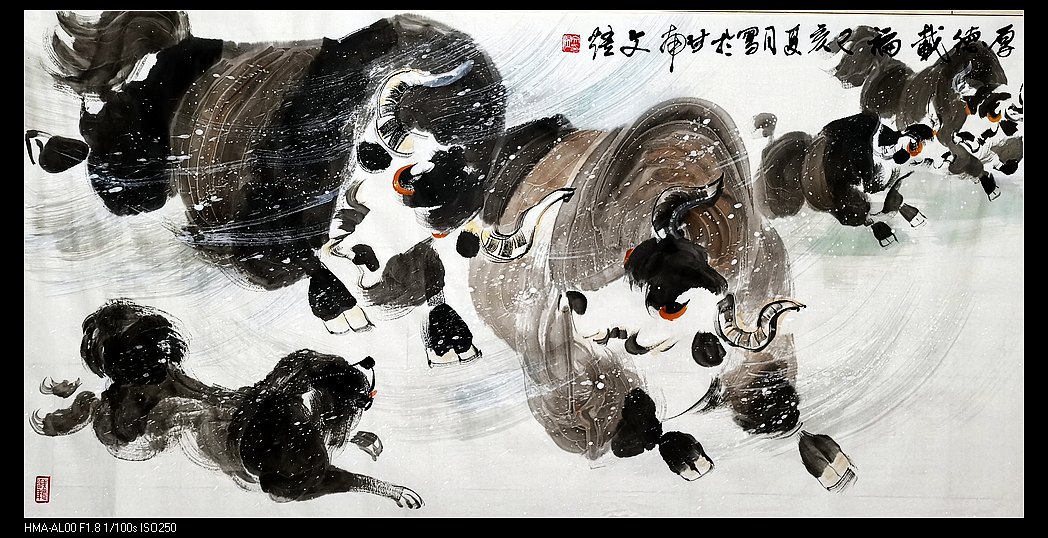 厚德載福 己亥夏月寫於甘南 文經
HMA-AL00 F1.8 1/100s ISO250